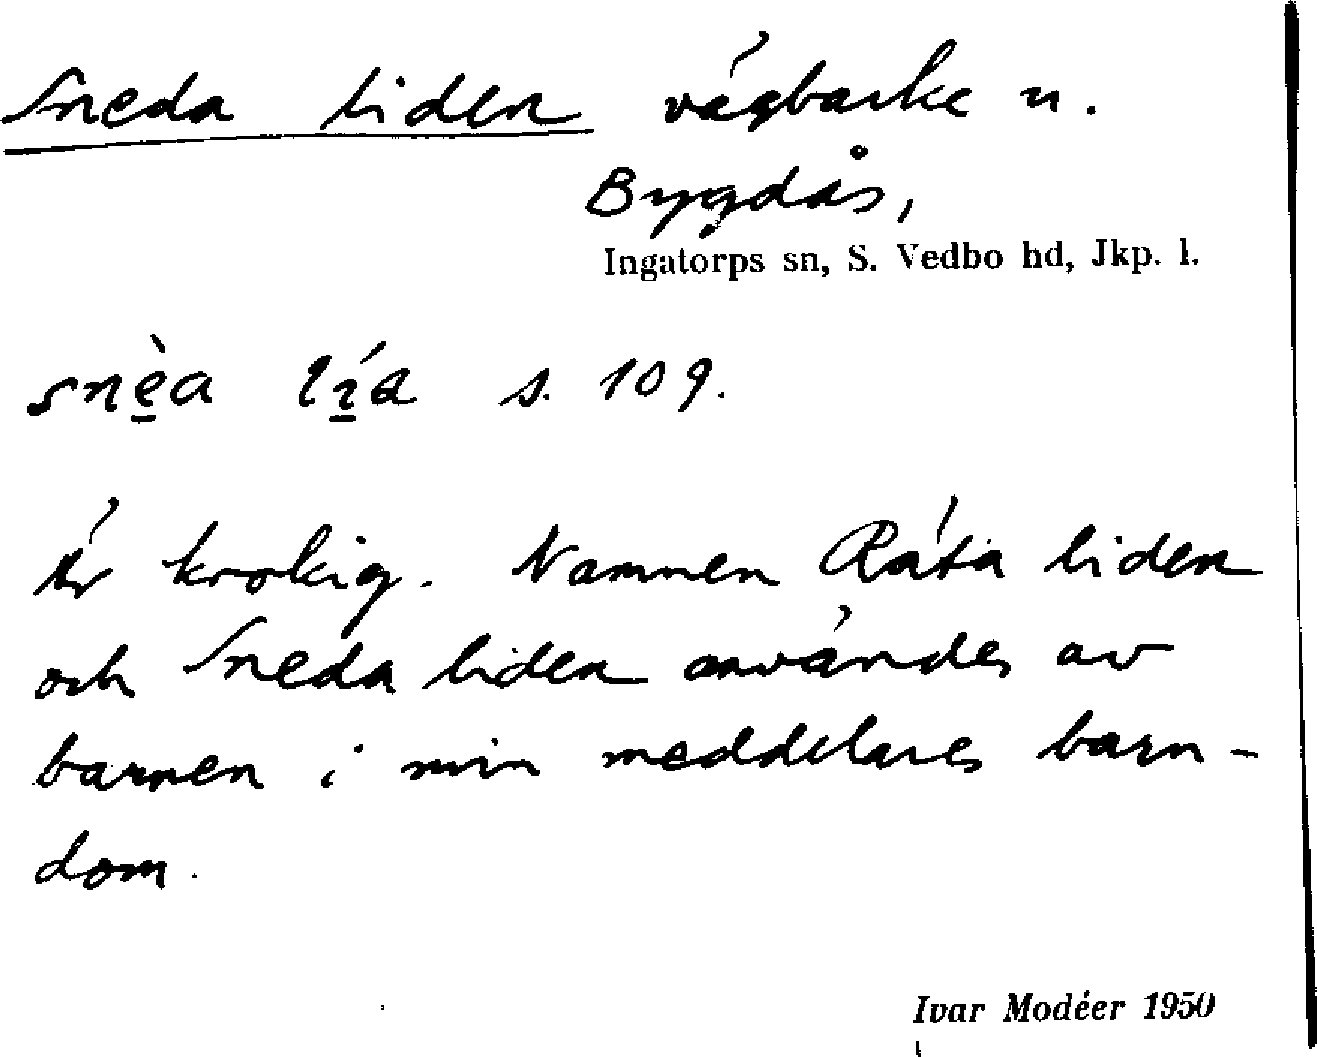 Sneda liden vägbacke n.
Bygdås,
Ingatorps sn, S. Vedbo hd, Jkp. l.
snèa lía s. 109.
Är krokig. Namnen Räta liden
och Sneda liden användes av
barnen i min meddelares barn-
dom.
Ivar Modéer 1950